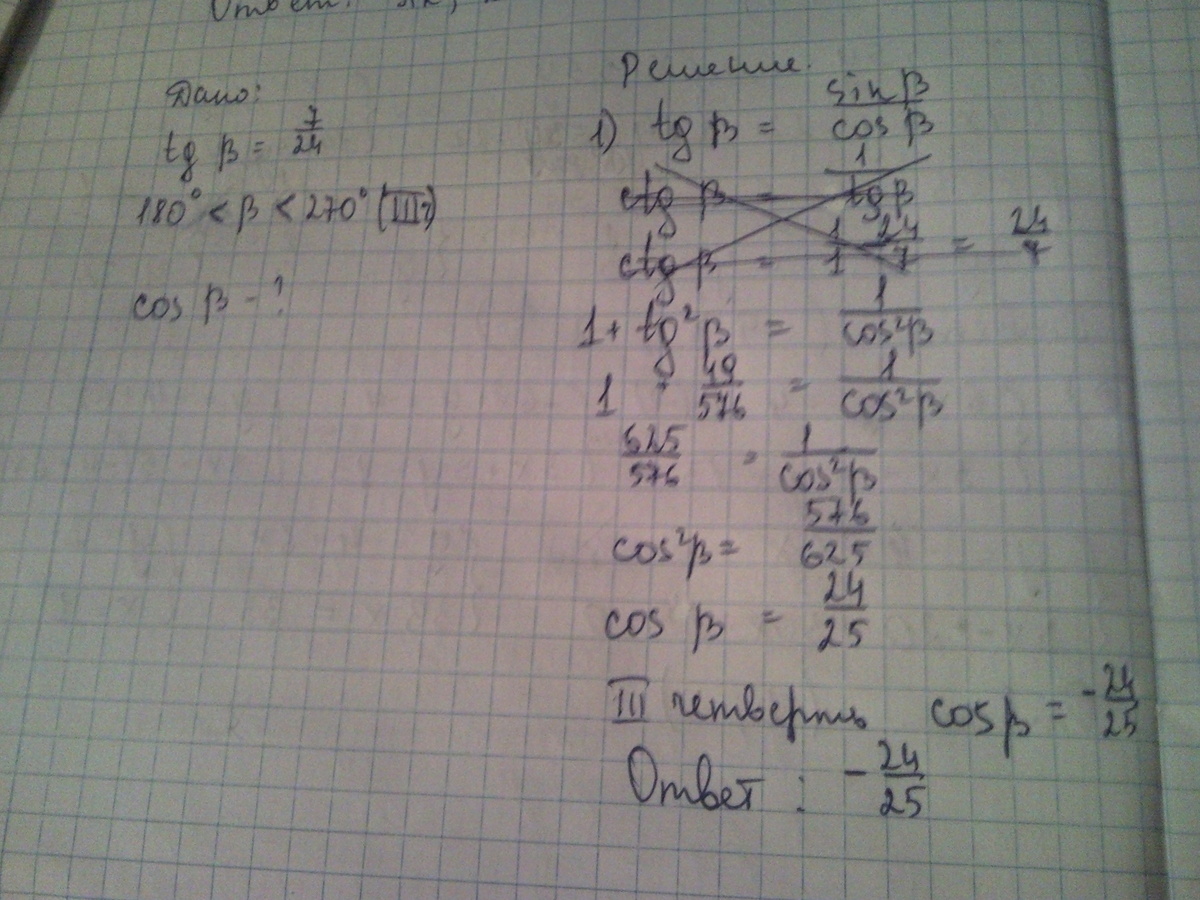 Ответ:
Дано:
tg β = 7/24
180° < β < 270° (III ч)
cos β - ?
Решение.
1) tg β = sin β / cos β
ctg β = 1 / tg β
ctg β = 1 · 24 / 1 · 7 = 24/7
1 + tg²β = 1 / cos²β
1 + 49/576 = 1 / cos²β
625/576 = 1 / cos²β
cos²β = 576/625
cos β = 24/25
III четверть cos β = - 24/25
Ответ : - 24/25